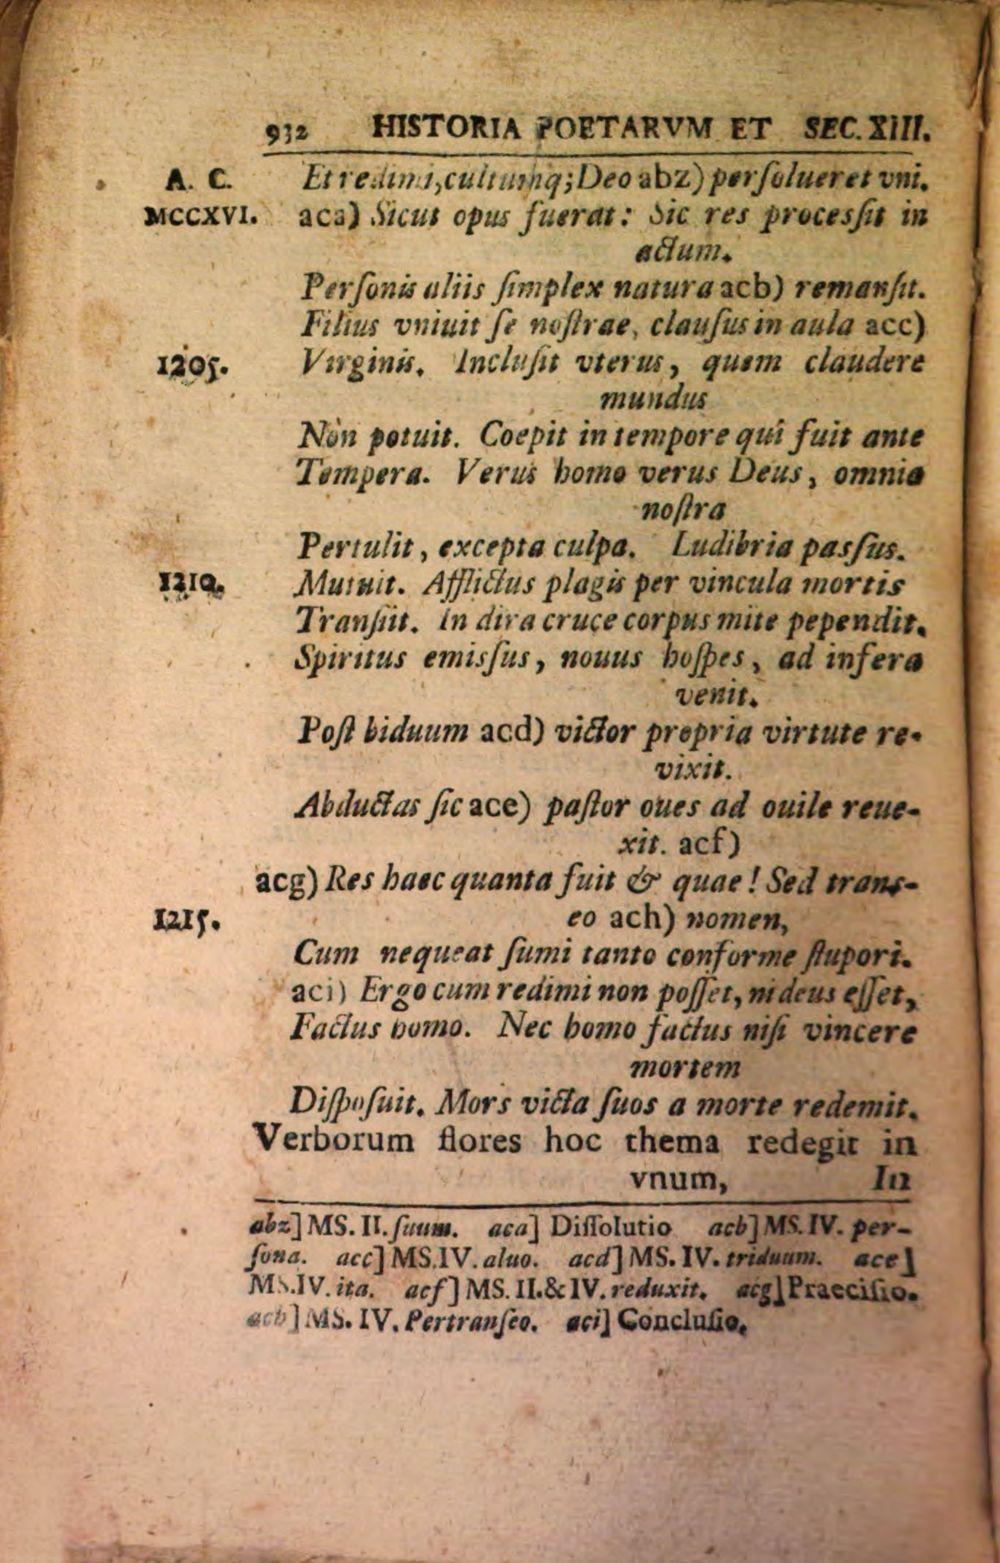 932 HISTORIA POETARVM ET SEC. XIII.
A. C. Et redimi, cultumq; Deo abz) persolueret vni.
MCCXVI. aca) Sicut opus fuerat: Sic res processit in
actum.
Personis aliis simplex natura acb) remansit.
Filius vniuit se nostrae, clausus in aula acc)
1205. Virginis. Inclusit vterus, quem claudere
mundus
Non potuit. Coepit in tempore qui fuit ante
Tempera. Verus homo verus Deus, omnia
nostra
Pertulit, excepta culpa. Ludibria passus.
1210. Mutuit. Afflictus plagis per vincula mortis
Transiit. In dira cruce corpus mite pependit.
Spiritus emissus, nouus hospes, ad infera
venit.
Post biduum acd) victor propria virtute re-
vixit.
Abductas sic ace) pastor oues ad ouile reue-
xit. acf)
acg) Res haec quanta fuit & quae! Sed trans-
1215. eo ach) nomen,
Cum nequeat sumi tanto conforme stupori.
aci) Ergo cum redimi non posset, ni deus esset,
Factus homo. Nec homo factus nisi vincere
mortem
Disposuit. Mors victa suos a morte redemit.
Verborum flores hoc thema redegit in
vnum, In
abz] MS. II. suum. aca] Dissolutio acb] MS. IV. per-
sona. acc] MS. IV. aluo. acd] MS. IV. triduum. ace]
MS. IV. ita. acf] MS. II. & IV. reduxit. acg] Praecisio.
ach] MS. IV. Pertranseo. aci] Conclusio.